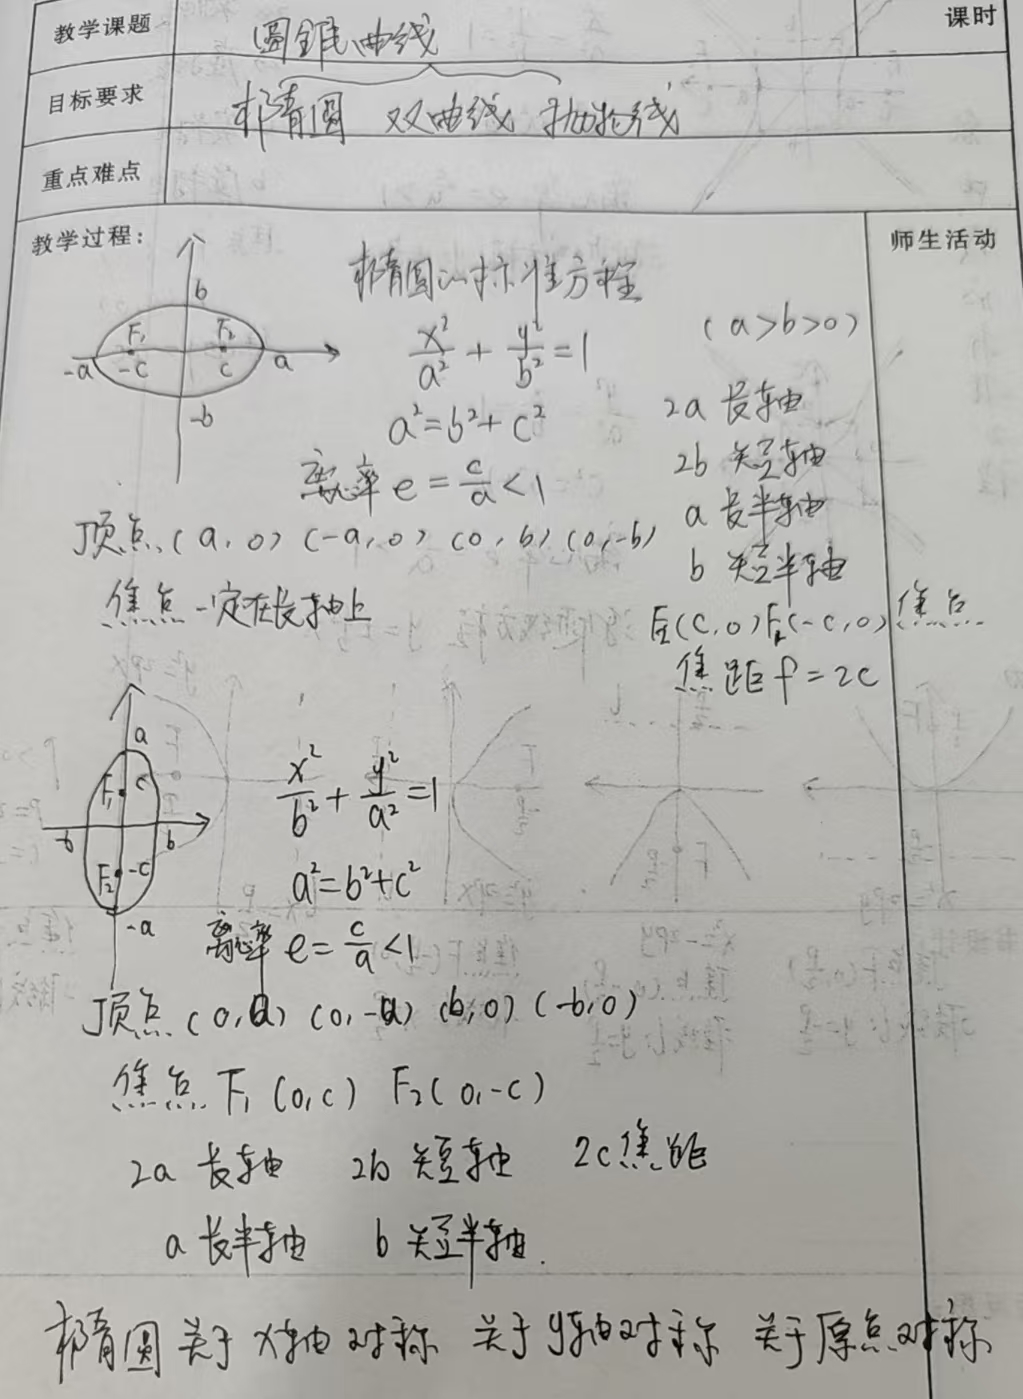 教学课题 圆锥曲线 课时
目标要求 椭圆 双曲线 抛物线
重点难点
教学过程: 师生活动
椭圆的标准方程
b
F₁ F₂
-a -c c a
-b
x²/a² + y²/b² = 1 (a>b>0)
a²=b²+c²
离心率 e = c/a < 1
2a 长轴
2b 短轴
a 长半轴
b 短半轴
顶点 (a,0) (-a,0) (0,b) (0,-b)
焦点一定在长轴上
(c,0) (-c,0) 焦点
焦距 f=2c
a
F₁ c
-b b
F₂ -c
-a
x²/b² + y²/a² = 1
a²=b²+c²
离心率 e = c/a < 1
顶点 (0,a) (0,-a) (b,0) (-b,0)
焦点 F₁ (0,c) F₂(0,-c)
2a 长轴 2b 短轴 2c焦距
a 长半轴 b 短半轴.
椭圆关于x轴对称 关于y轴对称 关于原点对称